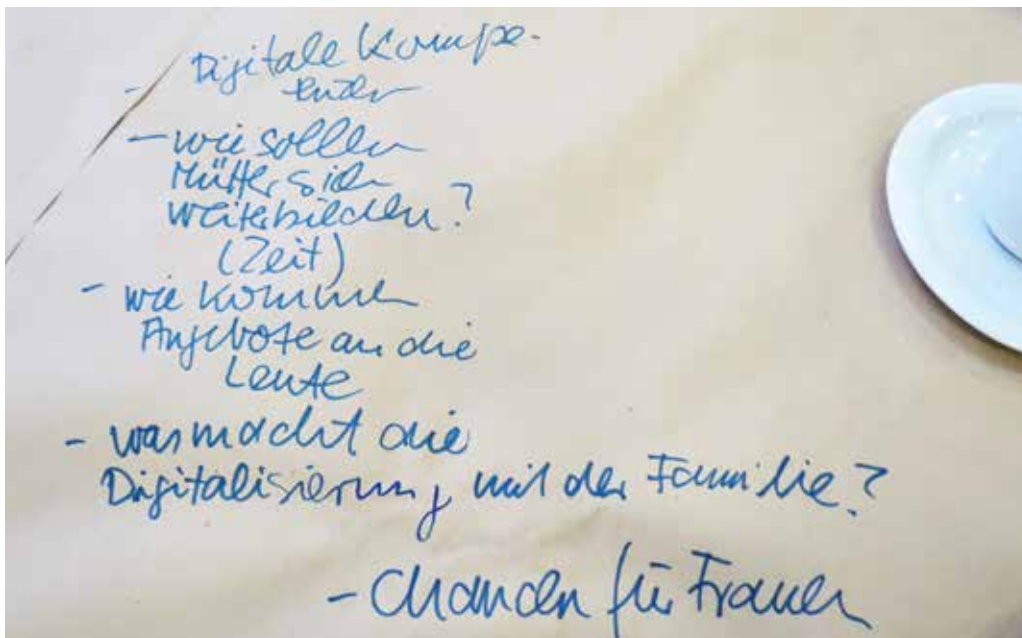 - Digitale Kompe-
tenzen
- wie sollen
Mütter sich
weiterbilden?
(Zeit)
- wie kommen
Angebote an die
Leute
- was macht die
Digitalisierung mit der Familie?
- Chancen für Frauen